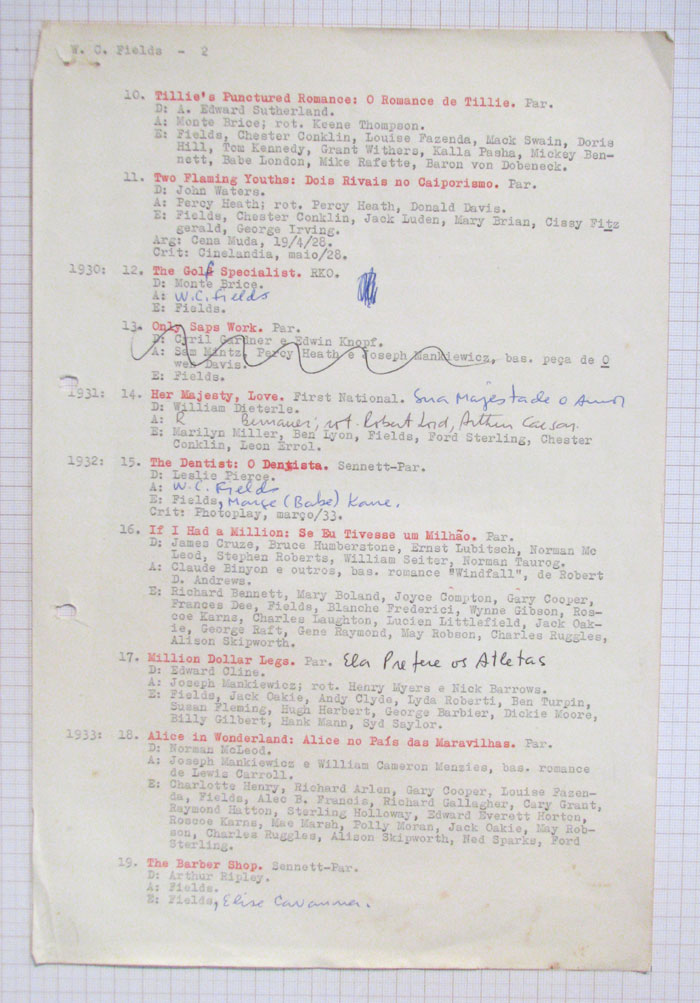 W. C. Fields - 2
10. Tillie's Punctured Romance: O Romance de Tillie. Par.
D: A. Edward Sutherland.
A: Monte Brice; rot. Keene Thompson.
E: Fields, Chester Conklin, Louise Fazenda, Mack Swain, Doris
Hill, Tom Kennedy, Grant Withers, Kalla Pasha, Mickey Ben-
nett, Babe London, Mike Rafette, Baron von Dobeneck.
11. Two Flaming Youths: Dois Rivais no Caiporismo. Par.
D: John Waters.
A: Percy Heath; rot. Percy Heath, Donald Davis.
E: Fields, Chester Conklin, Jack Luden, Mary Brian, Cissy Fitz
gerald, George Irving.
Arg: Cena Muda, 19/4/28.
Crit: Cinelandia, maio/28.
1930: 12. The Golf Specialist. RKO.
D: Monte Brice.
A: W.C. Fields
E: Fields.
13. Only Saps Work. Par.
D: Cyril Gardner e Edwin Knopf.
A: Sam Mintz, Percy Heath e Joseph Mankiewicz, bas. peça de O
wen Davis.
E: Fields.
1931: 14. Her Majesty, Love. First National. Sua Majestade o Amor
D: William Dieterle.
A: R Bernauer; rot. Robert Lord, Arthur Caesar.
E: Marilyn Miller, Ben Lyon, Fields, Ford Sterling, Chester
Conklin, Leon Errol.
1932: 15. The Dentist: O Dentista. Sennett-Par.
D: Leslie Pierce.
A: W.C. Fields
E: Fields, Marge (Babe) Kane.
Crit: Photoplay, março/33.
16. If I Had a Million: Se Eu Tivesse um Milhão. Par.
D: James Cruze, Bruce Humberstone, Ernst Lubitsch, Norman Mc
Leod, Stephen Roberts, William Seiter, Norman Taurog.
A: Claude Binyon e outros, bas. romance "Windfall", de Robert
D. Andrews.
E: Richard Bennett, Mary Boland, Joyce Compton, Gary Cooper,
Frances Dee, Fields, Blanche Frederici, Wynne Gibson, Ros-
coe Karns, Charles Laughton, Lucien Littlefield, Jack Oak-
ie, George Raft, Gene Raymond, May Robson, Charles Ruggles,
Alison Skipworth.
17. Million Dollar Legs. Par. Ela Prefere os Atletas
D: Edward Cline.
A: Joseph Mankiewicz; rot. Henry Myers e Nick Barrows.
E: Fields, Jack Oakie, Andy Clyde, Lyda Roberti, Ben Turpin,
Susan Fleming, Hugh Herbert, George Barbier, Dickie Moore,
Billy Gilbert, Hank Mann, Syd Saylor.
1933: 18. Alice in Wonderland: Alice no País das Maravilhas. Par.
D: Norman McLeod.
A: Joseph Mankiewicz e William Cameron Menzies, bas. romance
de Lewis Carroll.
E: Charlotte Henry, Richard Arlen, Gary Cooper, Louise Fazen-
da, Fields, Alec B. Francis, Richard Gallagher, Cary Grant,
Raymond Hatton, Sterling Holloway, Edward Everett Horton,
Roscoe Karns, Mae Marsh, Polly Moran, Jack Oakie, May Rob-
son, Charles Ruggles, Alison Skipworth, Ned Sparks, Ford
Sterling.
19. The Barber Shop. Sennett-Par.
D: Arthur Ripley.
A: Fields.
E: Fields, Elise Cavanna.